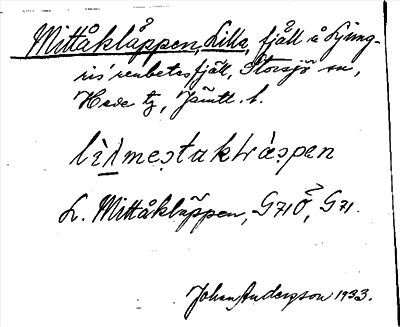 Mittåkläppen, Lilla, fjäll å Ljung-
ris' renbetesfjäll, Storsjö sn,
Hede tg, Jämtl. l.
lìlmestaktràspen
L. Mittåkläppen, G71Ö, G71.
Johan Anderson 1933.